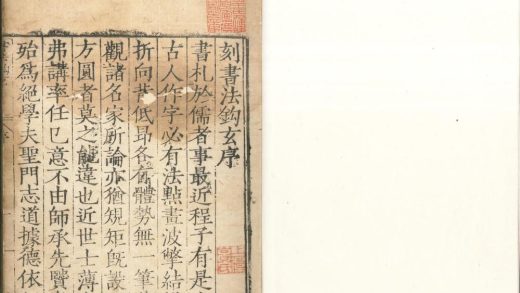 刻書法鈎玄序
書札於儒者事最近程子有是
古人作字必有法㸃畫波撆結
折向背低昂各有體勢無一筆
觀諸名家所論亦猶䂓矩旣設
方圓者莫之能違也近世士薄
弗講率任己意不由師承先賢
殆爲絕學夫聖門志道據德依